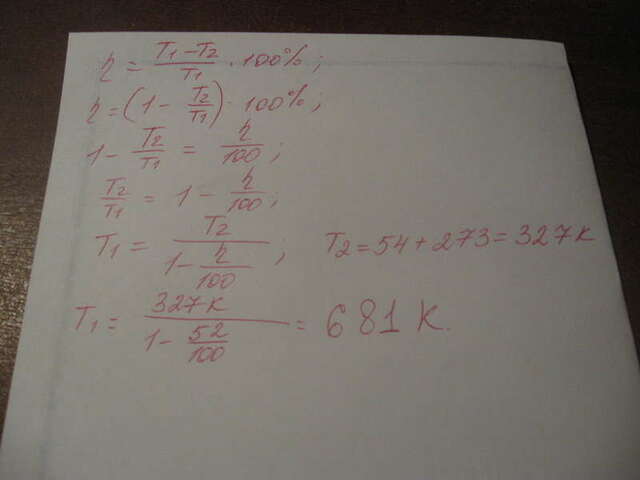 η = (T₁ - T₂)/T₁ · 100%;
η = (1 - T₂/T₁) · 100%;
1 - T₂/T₁ = η/100;
T₂/T₁ = 1 - η/100;
T₁ = T₂/(1 - η/100); T₂ = 54 + 273 = 327 K
T₁ = 327 K/(1 - 52/100) = 681 K.